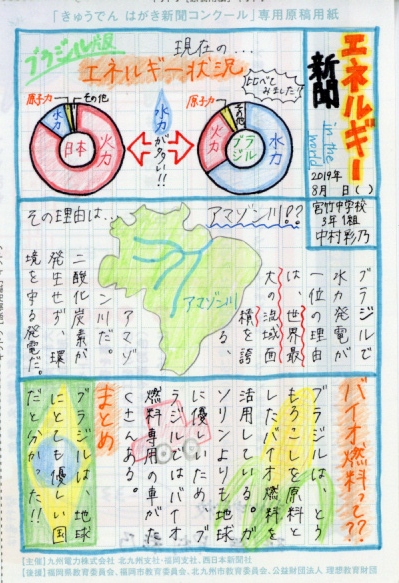 「きゅうでん はがき新聞コンクール」専用原稿用紙
エネルギー
新聞
in the
world
2019年
8月 日( )
宮竹中学校
3年1組
中村彩乃
ブラジル版
現在の…
エネルギー状況
比べて
みました!!
原子力
その他
水力
火力
日本
水力が多い!!
原子力
その他
火力
水力
ブラジル
その理由は…
アマゾン川??
アマゾン川
ブラジルで
水力発電が
一位の理由
は、世界最
大の流域面
積を誇
る、
アマゾ
ン川だ。
二酸化炭素が
発生せず、環
境を守る発電だ。
バイオ燃料って??
ブラジルは、とう
もろこしを原料と
したバイオ燃料を
活用している。ガ
ソリンよりも地球
に優しいため、ブ
ラジルではバイオ
燃料専用の車がた
くさんある。
まとめ
ブラジルは、地球
にとても優しい国
だと分かった!!
【主催】九州電力株式会社 北九州支社・福岡支社、西日本新聞社
【後援】福岡県教育委員会、福岡市教育委員会、北九州市教育委員会、公益財団法人 理想教育財団